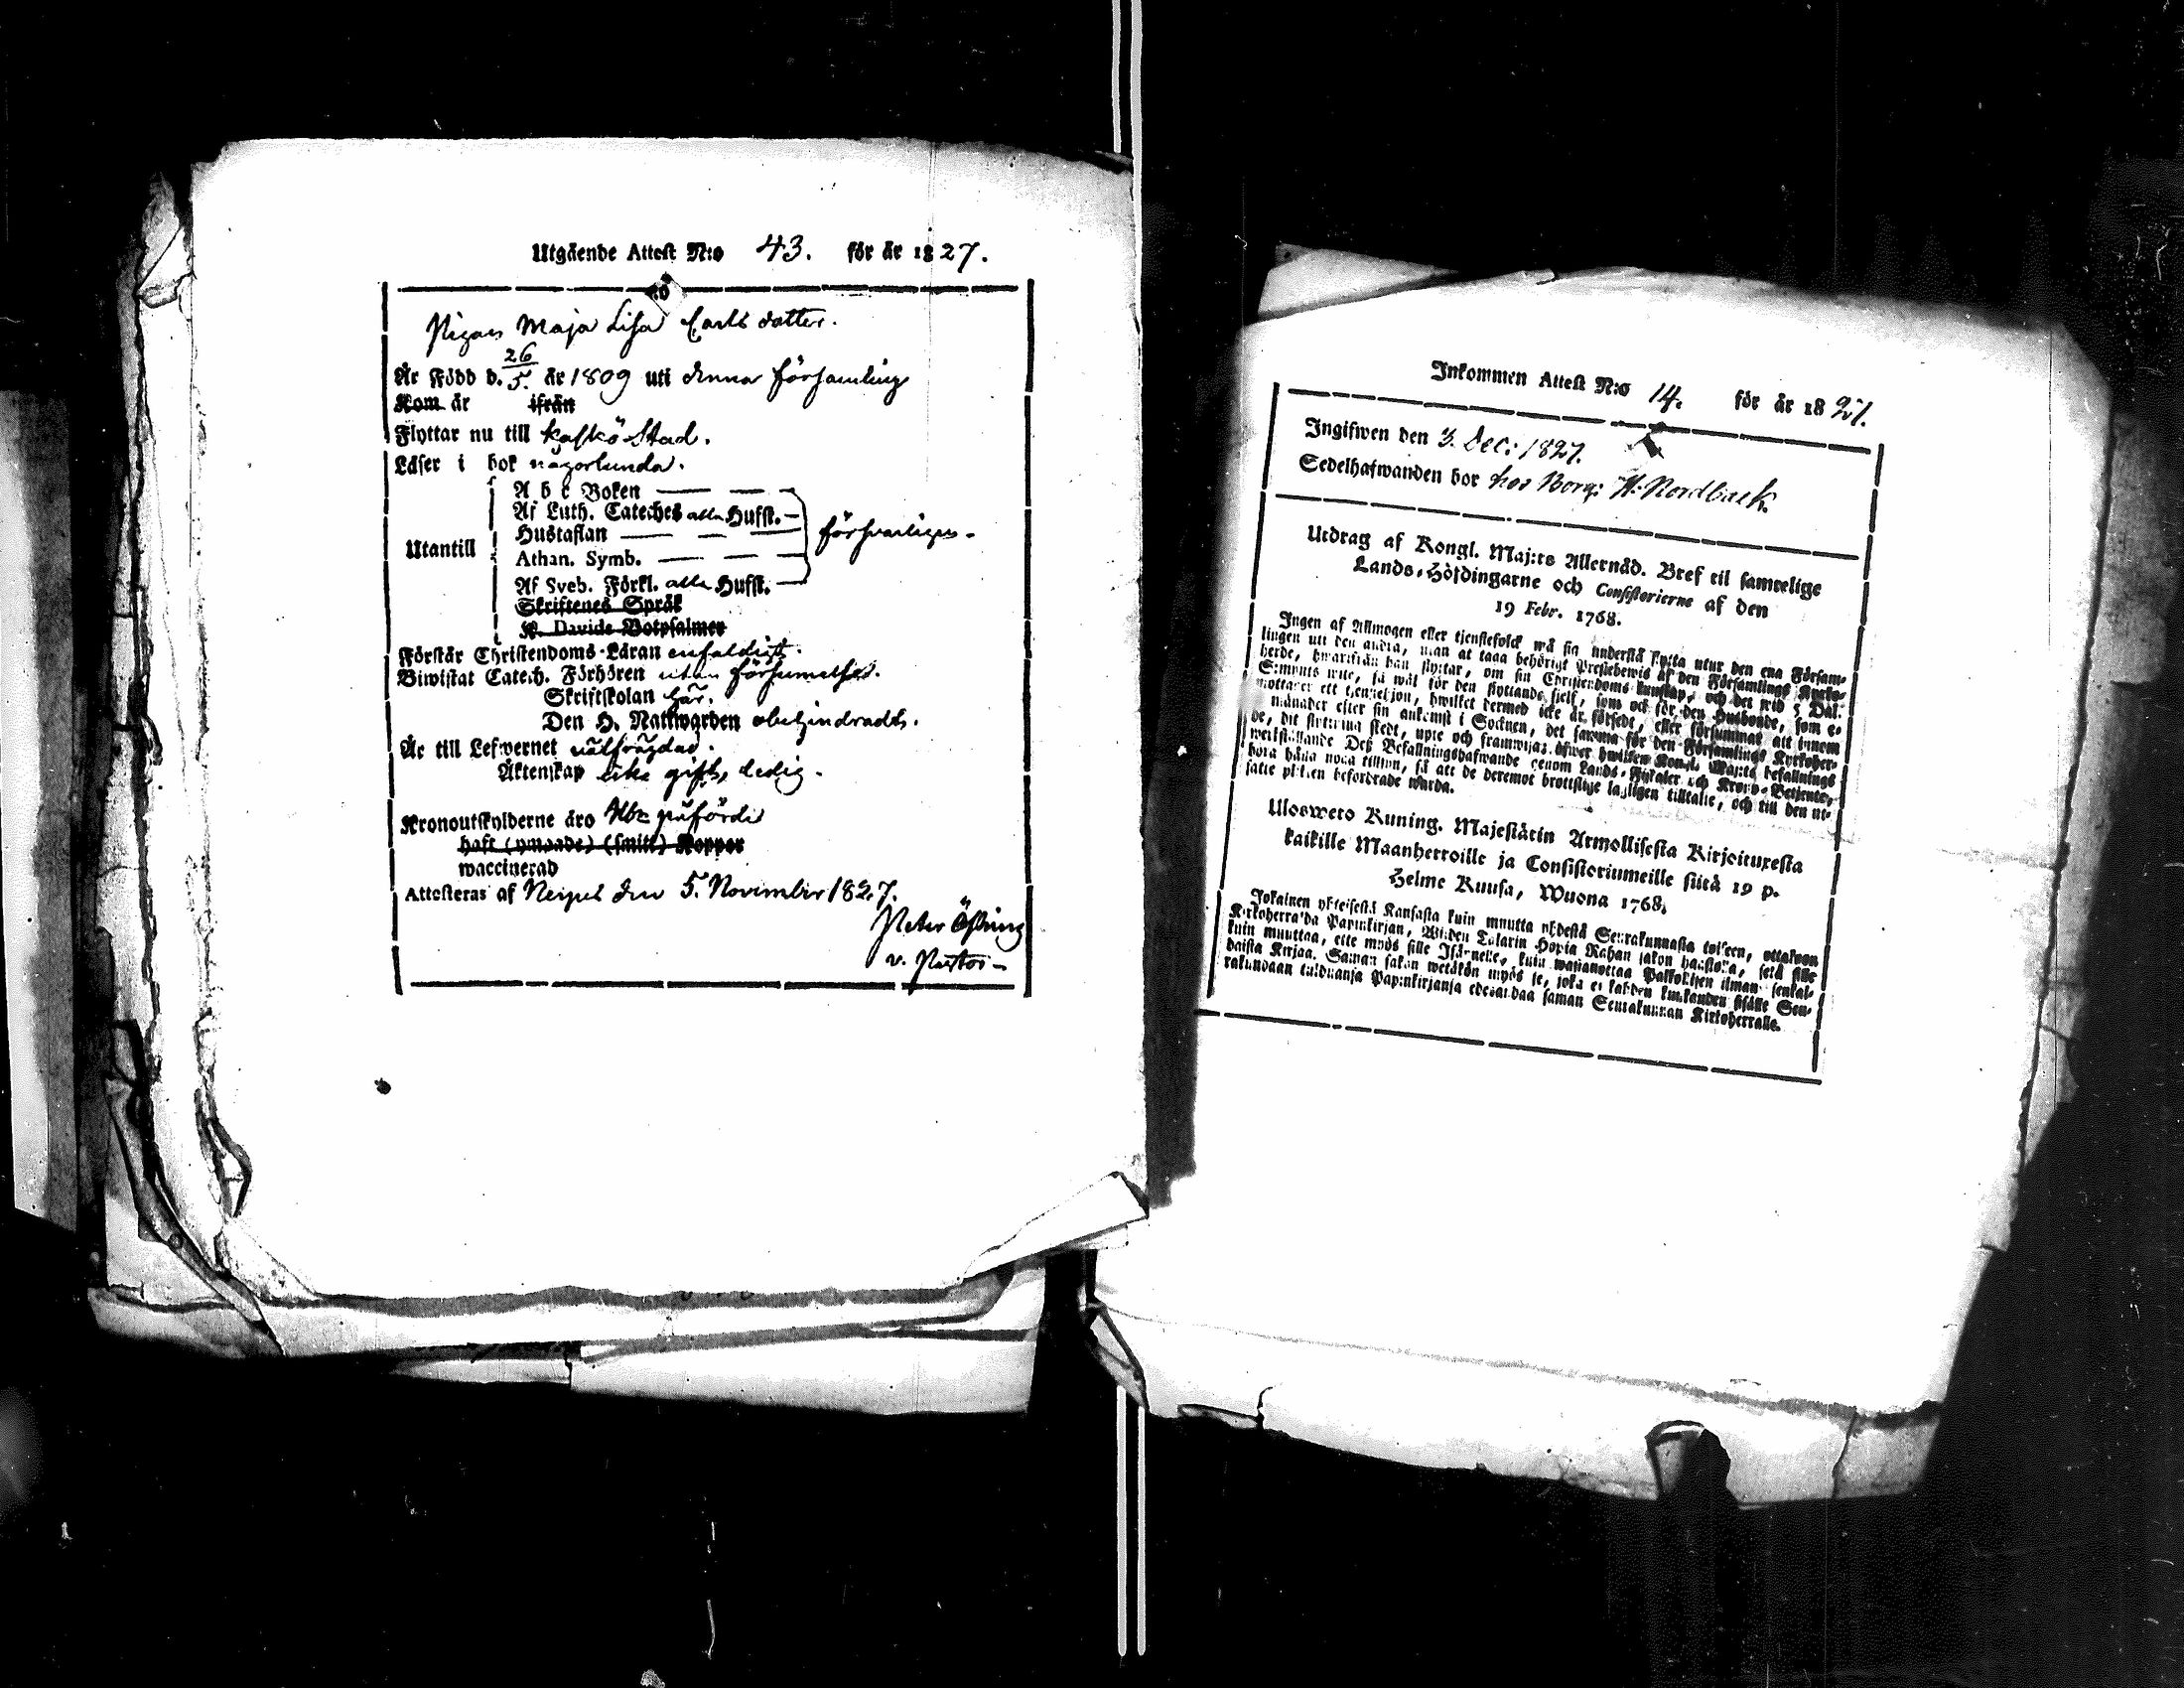 Utgående Attest N:o 43. för år 1827.
Pigan Maja Lisa Carls dotter.
Är Född d. 26/5. år 1809 uti denna församling
Kom år ifrån
Flyttar nu till Kaskö Stad.
Läser i bok någorlunda.
Utantill
A b c Boken
Af Luth. Cateches alla Hufst.
Hustaflan
Athan. Symb.
Af Sveb. Förkl. alla Hufst.
försvarligen.
Skriftenes Språk
K. Davids Botpsalmer
Förstår Christendoms-Läran enfaldigt.
Biwistat Catech. Förhören utan försumelse.
Skriftskolan här.
Den H. Nattwarden obehindradt.
Är till Lefwernet välfrägdad.
Äktenskap icke gift, ledig.
Kronoutskylderne äro påförde
haft (ympade) (smitt) Koppor
waccinerad
Attesteras af Nerpes den 5. November 1827.
Peter Östring
v. Pastor
Inkommen Attest N:o 14. för år 1827.
Ingifwen den 3. Dec: 1827.
Sedelhafwanden bor hos Borg: H. Nordback.
Utdrag af Kongl. Maj:ts Allernåd. Bref til samtelige
Lands-Höfdingarne och Consistorierne af den
19 Febr. 1768.
Ingen af Allmogen eller tjenstefolck må sig understå flytta utur den ena Försam-
lingen uti den andra, utan at taga behörigt Prestebewis af den Församlings Kyrko-
herde, hwarifrån han flyttar, om sin Christendoms kunskap, och det wid 5 Dal.
Silfmynts wite, så wäl för den flyttande sjelf, som ock för den Husbonde, som e-
mottager ett tjenstehjon, hwilket dermed icke är försedt, eller försummat att innom
månader efter sin ankomst i Socknen, det samma för den Församlings Kyrkoher-
de, dit flyttning skedt, upte och framwisa: öfwer hwilken Kongl. Maj:ts befallnings
werkställande Dess Befallningshafwande genom Lands-Fiskaler och Krono-Betjente,
böra hålla noga tillsyn, så att de deremot brottslige lagligen tilltalte, och till den ut-
satte plikten befordrade warda.
Uloswero Kuning. Majestätin Armollisesta Kirjoituxesta
kaikille Maanherroille ja Consistoriumeille siitä 19 p.
Helme Kuusa, Wuona 1768.
Jokainen yhteisestä Kansasta kuin muutta yhdestä Seurakunnasta toiseen, ottakoon
Kirkoherra'da Papinkirjan, Wiiden Talarin Hopia Rahan sakon haastolla, sekä sille
kuin muuttaa, ette myös sille Isännelle, kuin wastanottaa Palkollisen ilman senkal-
daista Kirjaa. Saman sakon wetäkön myös se, joka ei kahden kuukauden sisälle Seu-
rakundaan tulduansa Papinkirjansa edesandaa saman Seurakunnan Kirkoherralle.